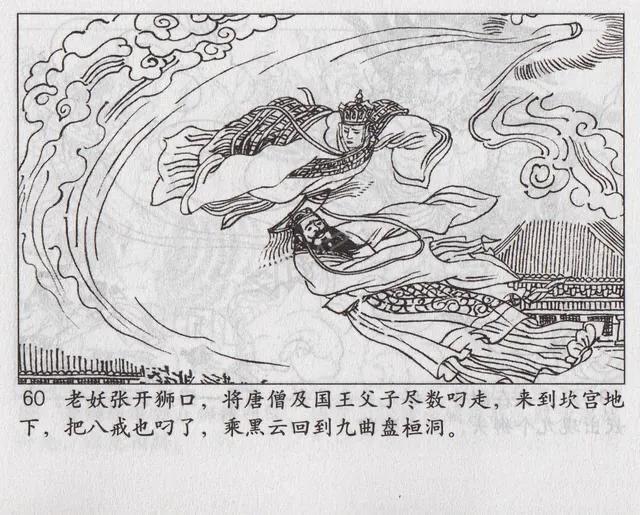 60 老妖张开狮口，将唐僧及国王父子尽数叼走，来到坎宫地
下，把八戒也叼了，乘黑云回到九曲盘桓洞。